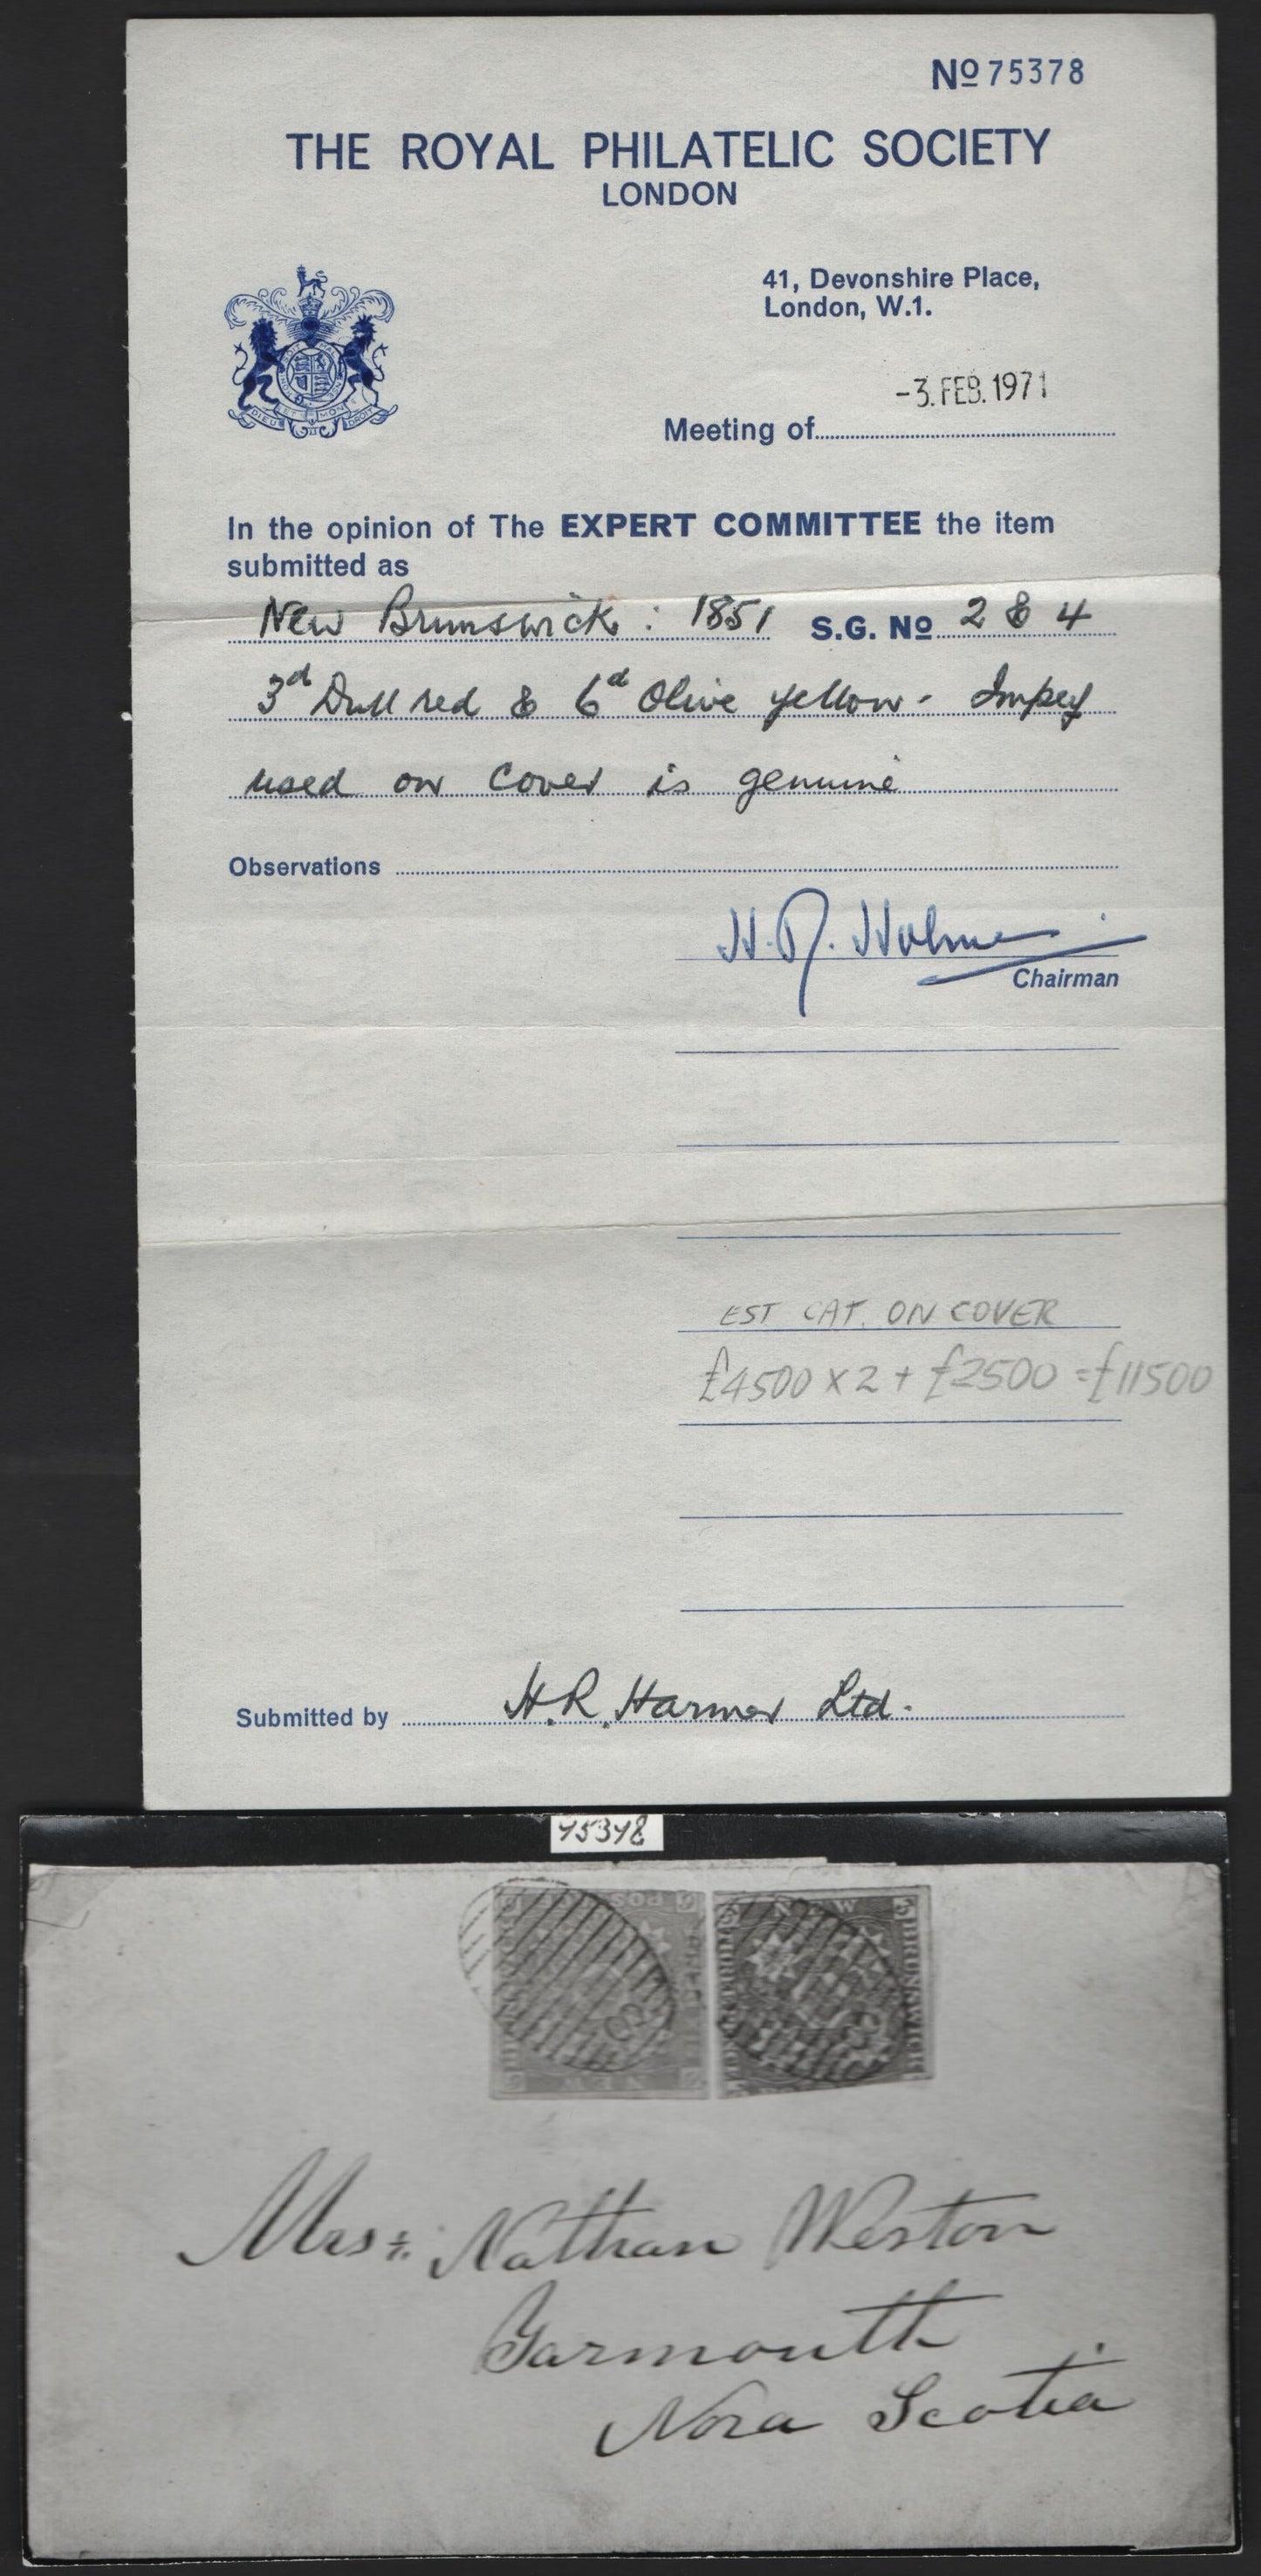 Nº 75378
THE ROYAL PHILATELIC SOCIETY
LONDON
41, Devonshire Place,
London, W.1.
-3. FEB. 1971
Meeting of
In the opinion of The EXPERT COMMITTEE the item
submitted as
New Brunswick: 1851 S.G. Nº 2 & 4
3d Dull red & 6d Olive yellow - Imperf
used on cover is genuine
Observations
H.R. Holmes
Chairman
EST CAT. ON COVER
£4500 x 2 + £2500 = £11500
Submitted by H.R. Harmer Ltd.
75378
NEW
BRUNSWICK
NEW
Mrs: Nathan Weston
Yarmouth
Nova Scotia